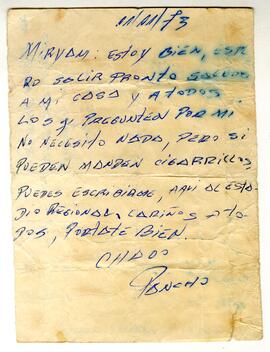 11/11/73
Miryam: Estoy bien, espe
ro salir pronto saludos
a mi casa y a todos
los q preguntan por mi
no necesito nada, pero si
pueden manden cigarrillos,
puedes escribirme, aqui al esta
dio Regional, cariños a to-
dos, portate bien.
Chaoo
Pancho